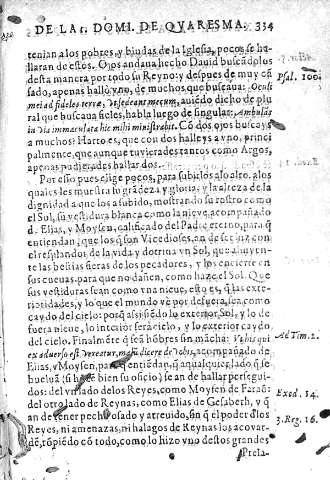 DE LA 2. DOMI. DE QVARESMA. 334
tenian a los pobres, y biudas de la Iglesia, pocos se ha-
llaran de estos. Ojos andaua hecho Dauid buscãdolos
desta manera por todo su Reyno: y despues de muy cã
sado, apenas hallò vno, de muchos que buscaua: Oculi
mei ad fideles terræ, vt sedeant mecum, auiẽdo dicho de plu
ral que buscaua fieles, habla luego de singular: Ambulãs
in via immaculata hic mihi ministrabat. Cõ dos ojos buscays
a muchos? Harto es, que con dos halleys a vno, princi
palmente, que aunque tuvierades tantos como Argos,
apenas pudierades hallar dos.
Por esso pues elige pocos, para subirlos a lo alto, a los
quales les muestra su grãdeza, y gloria, y la alteza de la
dignidad a que los a subido, mostrando su rostro como
el Sol, su vestidura blanca como la nieve, acompañado
d̃ Elias, y Moysen, calificado del Padre eterno, para q̃
entiendan, que los q̃ son Vicedioses, an de ser luz con
el resplandor de la vida y dotrina vn Sol, que ahuyen-
te las bestias fieras de los pecadores, y los encierre en
sus cueuas, para que no dañen, como haze el Sol. Que
sus vestiduras sean como vna nieue, esto es, q̃ las exte-
rioridades, y lo que el mundo vè por defuera, sea como
caydo del cielo: porq̃ assi siẽdo lo exterior Sol, y lo de
fuera nieue, lo interior serà cielo, y lo exterior caydo
del cielo. Finalmẽte q̃ sea hõbres sin macha: Vt his qui
ex aduerso est vereatur, malũ dicere de vobis, acompañado de
Elias, y Moysen, para q̃ entiendã, q̃ aqualquier lado q̃ se
buelua (si haze bien su oficio) se an de hallar persegui-
dos: del vn lado de los Reyes, como Moysen de Faraõ:
del otro lado de Reynas, como Elias de Gesabeth, y q̃
an de tener pecho osado y atreuido, sin q̃ el poder d̃ los
Reyes, ni amenazas, ni halagos de Reynas los acovar-
dẽ, rõpiẽdo cõ todo, como lo hizo vno destos grandes
Prela-
Psal. 100.
Ad Tim. 2.
Exod. 14.
3. Reg. 16.